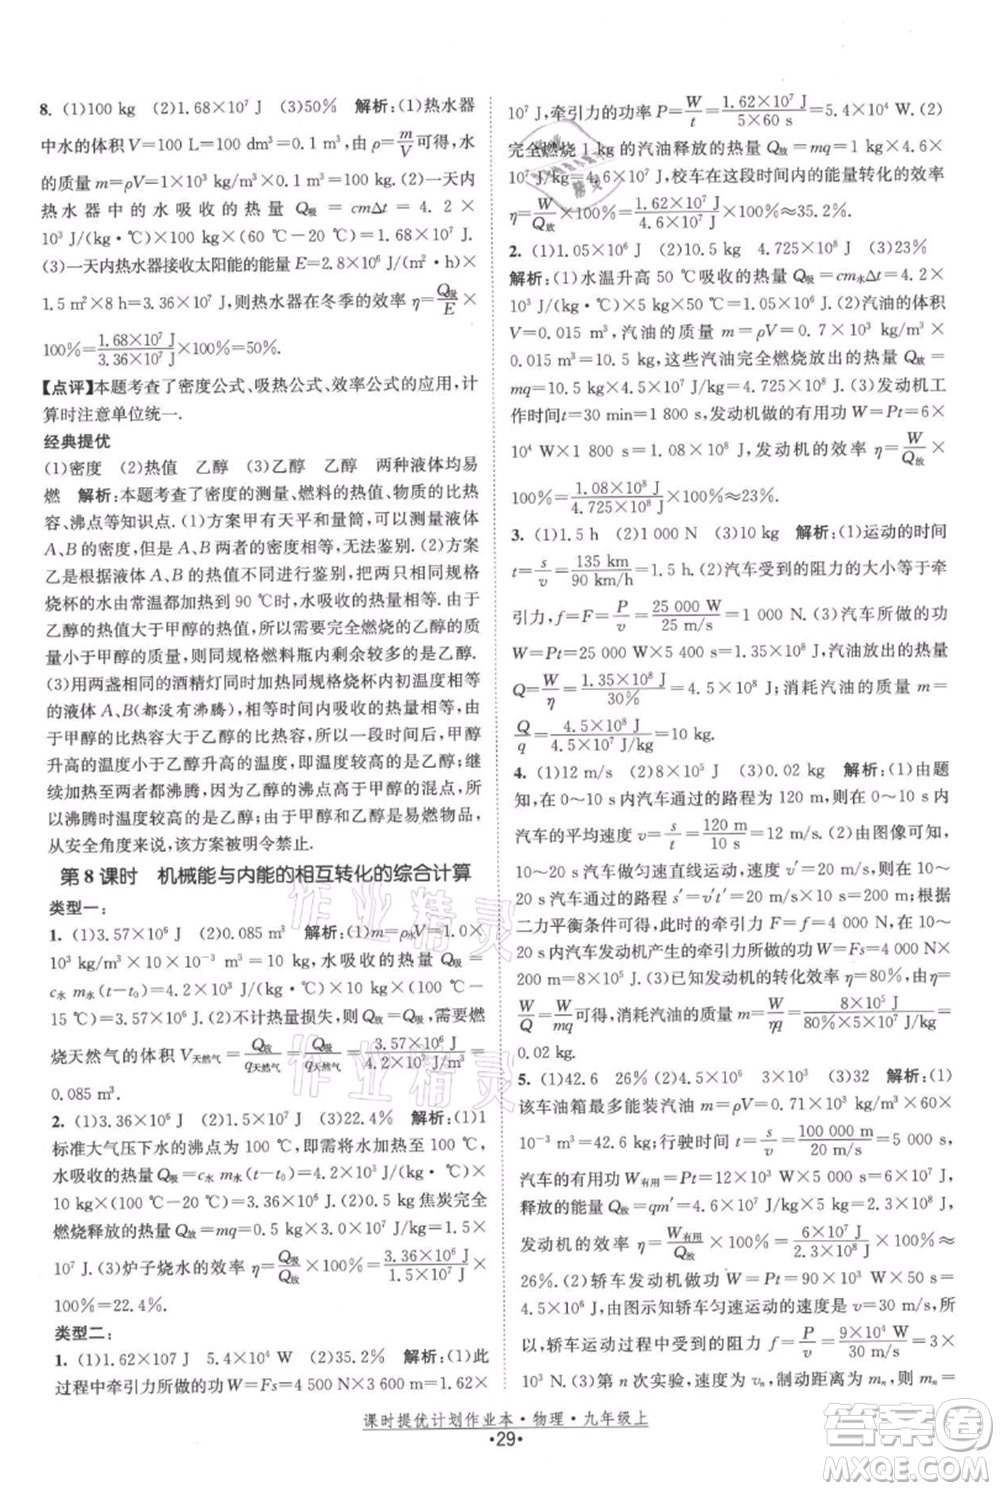 8. (1)100 kg (2)1.68×10⁷ J (3)50% 解析:(1)热水器
中水的体积 V=100 L=100 dm³=0.1 m³,由 ρ=m/V 可得,水
的质量 m=ρV=1×10³ kg/m³×0.1 m³=100 kg. (2)一天内
热水器中的水吸收的热量 Q吸=cmΔt=4.2×
10³ J/(kg·℃)×100 kg×(60 ℃-20 ℃)=1.68×10⁷ J.
(3)一天内热水器接收太阳能的能量 E=2.8×10⁶ J/(m²·h)×
1.5 m²×8 h=3.36×10⁷ J,则热水器在冬季的效率 η=Q吸/E×
100%=1.68×10⁷ J/3.36×10⁷ J×100%=50%.
【点评】本题考查了密度公式、吸热公式、效率公式的应用,计
算时注意单位统一.
经典提优
(1)密度 (2)热值 乙醇 (3)乙醇 乙醇 两种液体均易
燃 解析:本题考查了密度的测量、燃料的热值、物质的比热
容、沸点等知识点.(1)方案甲有天平和量筒,可以测量液体
A、B的密度,但因A、B两者的密度相等,无法鉴别.(2)方案
乙是根据液体A、B热值的不同进行鉴别,把两个完全相同
烧杯的水由常温都加热到 90 ℃时,水吸收的热量相同,因
乙醇的热值大于甲醇的热值,所以完全燃烧的乙醇的质
量小于甲醇的质量,则相同燃料瓶内剩余量较多的是乙醇.
(3)用两盏相同的酒精灯同时给相同烧杯内初温相同的液
体A、B(都没有沸腾)加热,相同时间内吸收的热量相等,
因为甲醇的比热容大于乙醇的比热容,质量相同,甲醇升
高的温度小于乙醇升高的温度,则温度升高较大的是乙醇;
两者都沸腾后,因为在相同条件下乙醇的沸点高于甲醇,所
以沸腾时温度较高的是乙醇;由于甲醇和乙醇均易燃烧,
从安全角度出发,该方案被明令禁止.
第 8 课时 机械能与内能的相互转化的综合计算
类型一:
1. (1)3.57×10⁶ J (2)0.085 m³ 解析:(1)m=ρ₀V=1.0×
10³ kg/m³×10×10⁻³ m³=10 kg;水吸收的热量 Q吸=
c水 m水(t-t₀)=4.2×10³ J/(kg·℃)×10 kg×(100 ℃-
15 ℃)=3.57×10⁶ J. (2)不计热量损失,则 Q放=Q吸,需要燃
烧天然气的体积 V天然气=Q放/q天然气=Q吸/q天然气=3.57×10⁶ J/4.2×10⁷ J/m³=
0.085 m³.
2. (1)3.36×10⁶ J (2)1.5×10⁷ J (3)22.4% 解析:(1)1
标准大气压下水的沸点为 100 ℃,将水加热至 100 ℃时,
水吸收的热量 Q吸=c水 m水(t-t₀)=4.2×10³ J/(kg·℃)×
10 kg×(100 ℃-20 ℃)=3.36×10⁶ J. (2)0.5 kg 焦炭完全
燃烧释放的热量 Q放=mq=0.5 kg×3×10⁷ J/kg=1.5×
10⁷ J. (3)炉子烧水的效率 η=Q吸/Q放×100%=3.36×10⁶ J/1.5×10⁷ J×
100%=22.4%.
类型二:
1. (1)1.62×10⁷ J 5.4×10⁴ W (2)35.2% 解析:(1)此
过程中牵引力所做的功 W=Fs=4 500 N×3 600 m=1.62×
10⁷ J,牵引力的功率 P=W/t=1.62×10⁷ J/5×60 s=5.4×10⁴ W. (2)
完全燃烧 1 kg 的汽油释放的热量 Q放=mq=1 kg×4.6×
10⁷ J/kg=4.6×10⁷ J,校车在这段时间内的能量转化的效率
η=W/Q放×100%=1.62×10⁷ J/4.6×10⁷ J×100%≈35.2%.
2. (1)1.05×10⁶ J (2)10.5 kg 4.725×10⁸ J (3)23%
解析:(1)水温升高 50 ℃吸收的热量 Q吸=cm水Δt=4.2×
10³ J/(kg·℃)×5 kg×50 ℃=1.05×10⁶ J. (2)汽油的体积
V=0.015 m³,汽油的质量 m=ρV=0.7×10³ kg/m³×
0.015 m³=10.5 kg,这些汽油完全燃烧放出的热量 Q放=
mq=10.5 kg×4.5×10⁷ J/kg=4.725×10⁸ J. (3)发动机工
作时间t=30 min=1 800 s,发动机做的有用功 W=Pt=6×
10⁴ W×1 800 s=1.08×10⁸ J,发动机的效率 η=W/Q放×
100%=1.08×10⁸ J/4.725×10⁸ J×100%≈23%.
3. (1)1.5 h (2)1 000 N (3)10 kg 解析:(1)运动的时间
t=s/v=135 km/90 km/h=1.5 h. (2)汽车受到的阻力的大小等于牵
引力,f=F=P/v=25 000 W/25 m/s=1 000 N. (3)汽车所做的功
W=Pt=25 000 W×5 400 s=1.35×10⁸ J,汽油放出的热量
Q=W/η=1.35×10⁸ J/30%=4.5×10⁸ J;消耗汽油的质量 m=
Q/q=4.5×10⁸ J/4.5×10⁷ J/kg=10 kg.
4. (1)12 m/s (2)8×10⁵ J (3)0.02 kg 解析:(1)由题
知,在 0～10 s 内汽车通过的路程为 120 m,在0～10 s内
汽车的平均速度 v=s/t=120 m/10 s=12 m/s. (2)汽车在 10～
20 s 内通过的路程 s′=v′t′=20 m/s×10 s=200 m,根据
二力平衡条件可得,此时的牵引力 F=f=4 000 N,在 10～
20 s内汽车发动机产生的牵引力所做的功 W=Fs=4 000 N×
200 m=8×10⁵ J. (3)已知发动机的转化效率 η=80%,由η=
W/Q=W/mq可得,消耗汽油的质量 m=W/ηq=8×10⁵ J/80%×5×10⁷ J/kg=
0.02 kg.
5. (1)42.6 26% (2)4.5×10⁶ 3×10³ (3)32 解析:(1)
该车油箱最多能装汽油 m=ρV=0.71×10³ kg/m³×60×
10⁻³ m³=42.6 kg;行驶时间 t=s/v=100 000 m/20 m/s=5 000 s,
汽车的有用功 W有用=Pt=12 000 W×5 000 s=6×10⁷ J,
释放的能量 Q放=qm′=4.6×10⁷ J/kg×5 kg=2.3×10⁸ J,
发动机的效率 η=W有用/Q放×100%=6×10⁷ J/2.3×10⁸ J×100%≈
26%. (2)轿车发动机做功 W=Pt=90×10³ W×50 s=
4.5×10⁶ J,由图示知轿车匀速运动的速度为 v=30 m/s,所
以,轿车运动过程中受到的阻力 f=P/v=9×10⁴ W/30 m/s=3×
10³ N. (3)由题意知,第 n 次实验时,车速 vn=20n,mn=
课时提优计划作业本·物理·九年级上
·29·
作业精灵
作业精灵
答案圈
MXQE.COM